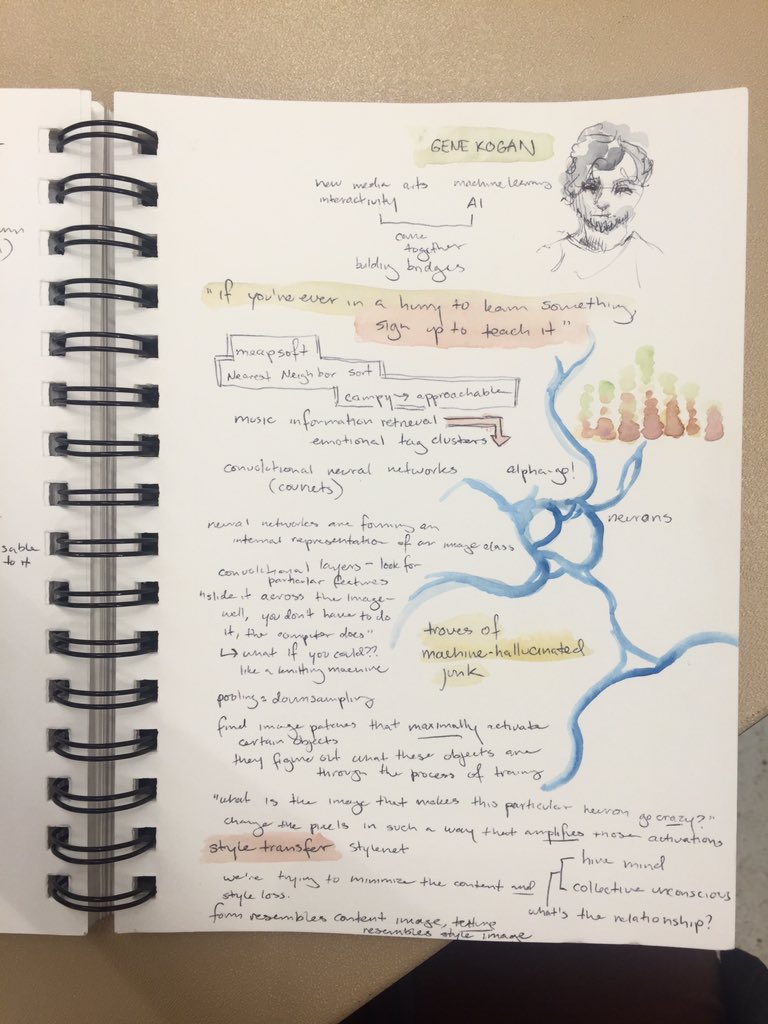 GENE KOGAN
new media arts machine learning
interactivity AI
come
together
building bridges
"if you've ever in a hurry to learn something,
sign up to teach it"
meapsoft
Nearest Neighbor sort
campy → approachable
music information retrieval
emotional tag clusters
convolutional neural networks alpha-go!
(covnets)
neurons
neural networks are forming an
internal representation of an image class
convolutional layers – look for
particular features
"slide it across the image –
well, you don't have to do
it, the computer does"
↳ what if you could??
like a knitting machine
troves of
machine-hallucinated
junk
pooling = downsampling
find image patches that maximally activate
certain objects
they figure out what these objects are
through the process of training
"what is the image that makes this particular neuron go crazy?"
change the pixels in such a way that amplifies those activations
style transfer stylenet
hive mind
we're trying to minimize the content and
collective unconscious
style loss.
what's the relationship?
form resembles content image,
resembles style image
sable
to it